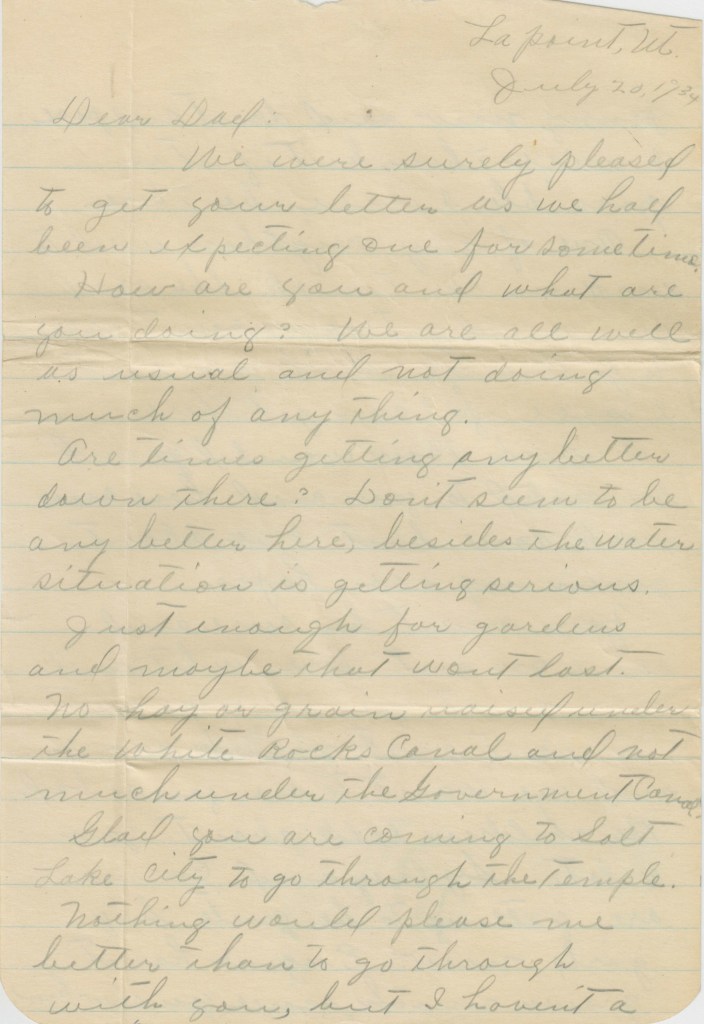 La point, Ut.
July 20, 1934
Dear Dad:
We were surely pleased
to get your letter as we had
been expecting one for sometime.
How are you and what are
you doing? We are all well
as usual and not doing
much of any thing.
Are times getting any better
down there? Dont seem to be
any better here, besides the water
situation is getting serious.
Just enough for gardens
and maybe that wont last.
No hay or grain raised under
the White Rocks Canal and not
much under the Government Canal.
Glad you are coming to Salt
Lake City to go through the Temple.
Nothing would please me
better than to go through
with you, but I havent a